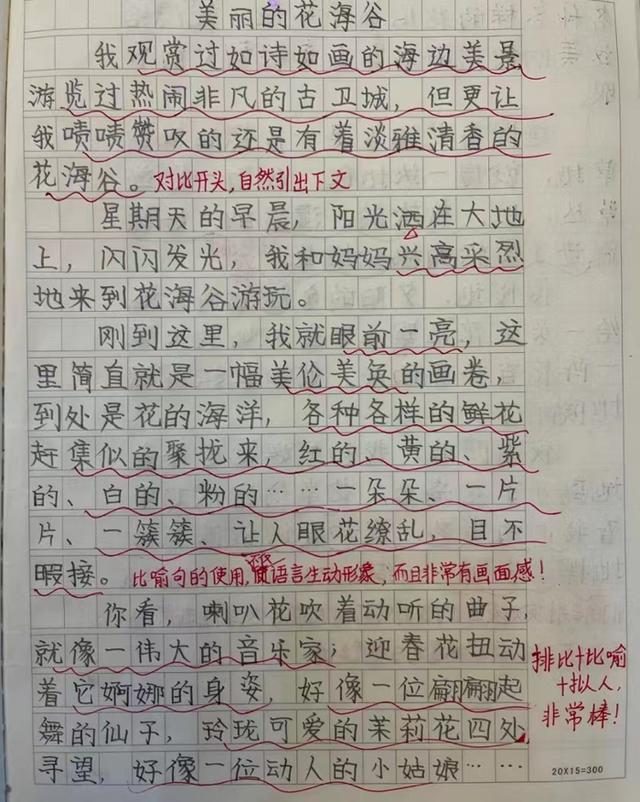 美丽的花海谷
我观赏过如诗如画的海边美景
游览过热闹非凡的古卫城，但更让
我啧啧赞叹的还是有着淡雅清香的
花海谷。对比开头，自然引出下文
星期天的早晨，阳光洒在大地
上，闪闪发光，我和妈妈兴高采烈
地来到花海谷游玩。
刚到这里，我就眼前一亮，这
里简直就是一幅美伦美奂的画卷，
到处是花的海洋，各种各样的鲜花
赶集似的聚拢来，红的、黄的、紫
的、白的、粉的……一朵朵、一片
片、一簇簇、让人眼花缭乱，目不
暇接。比喻句的使用，使语言生动形象，而且非常有画面感！
你看，喇叭花吹着动听的曲子，
就像一伟大的音乐家；迎春花扭动
着它婀娜的身姿，好像一位翩翩起
舞的仙子，玲珑可爱的茉莉花四处
寻望，好像一位动人的小姑娘……
排比+比喻
+拟人，
非常棒！
20X15=300